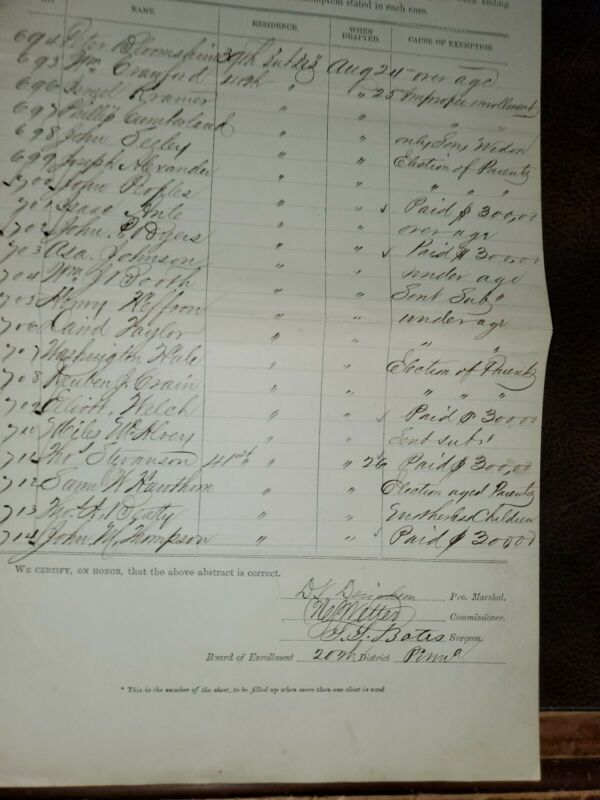 exemption stated in each case.
No. NAME. RESIDENCE. WHEN DRAFTED. CAUSE OF EXEMPTION.
694 Peter Bloomshine 39th Sub Dis Aug 24 over age
695 Wm Cranford 40th " " 25 Improper enrollment
696 Israel Kramer " " "
697 Phillip Cumberland " "
698 John Seeley " " only Son, Widow
699 Joseph Alexander " " Election of Parents
700 John Peoples " " " " "
701 Isaac " " Paid $300,00
702 John P. Byers " " over age
703 Asa Johnson " " Paid $300,00
704 Wm J Booth " " under age
705 Henry Heffron " " Sent Sub
706 David Taylor " " under age
707 Washington Hale " " " "
708 Reuben J. Crain " " Election of Parents
709 Elliott Welch " " " " "
710 Miles McAlvey " " Paid $300,00
711 Tho Stevanson 41st " " 26 Sent sub
712 Saml W Hawthorn " " Paid $300,00
713 Tho. A. Beaty " " Election aged Parents
714 John M. Thompson " " Motherless Children
Paid $300,00
WE CERTIFY, ON HONOR, that the above abstract is correct.
Pro. Marshal.
Commissioner.
Bates Surgeon.
Board of Enrollment 20th District Penna
* This is the number of the sheet, to be filled up when more than one sheet is used.